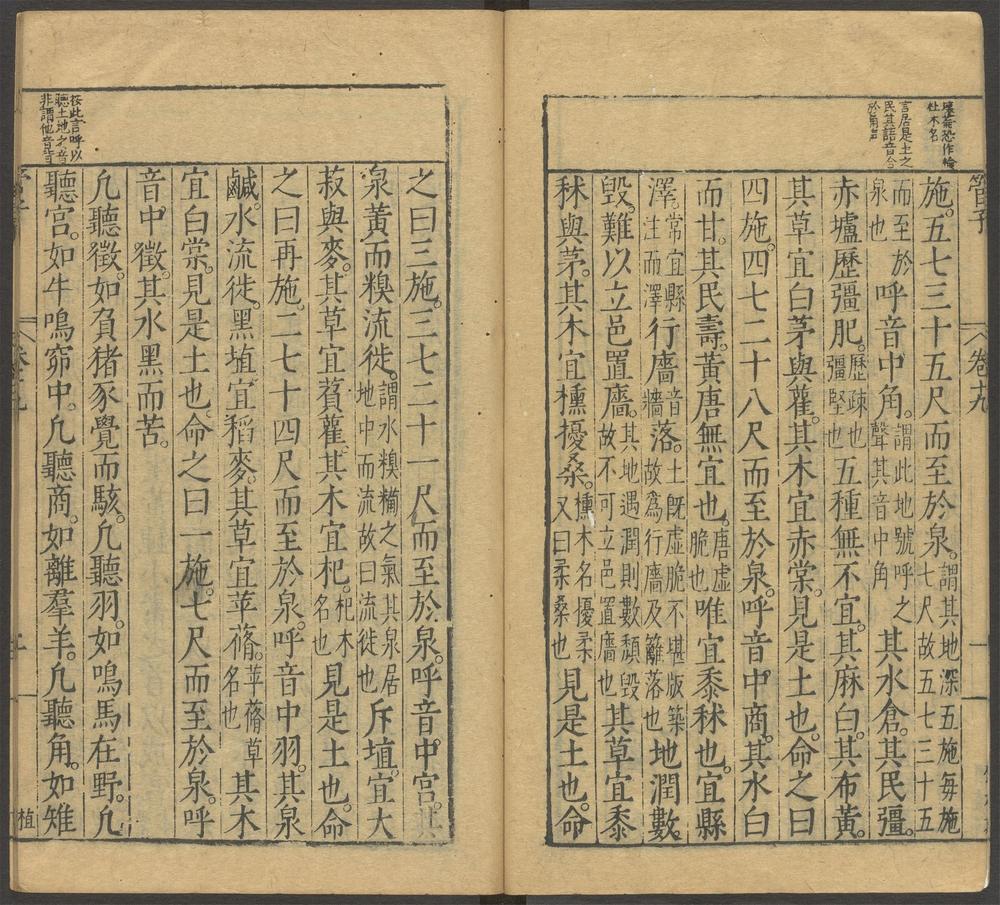 壚菕恐作檢
杜木名
言居是土之
民其語音合
於角声
管子
卷十九
一
施。五七三十五尺而至於泉。謂其地深五施每施七尺故五七三十五
而至於泉也呼音中角。謂此地號呼之聲其音中角其水倉。其民彊。
赤壚歷彊肥。歷疎也彊堅也五種無不宜。其麻白。其布黃。
其草宜白茅與雚。其木宜赤棠。見是土也。命之曰
四施。四七二十八尺而至於泉。呼音中商。其水白
而甘。其民壽。黃唐無宜也。唐虛脆也唯宜黍秫也。宜縣
澤。常宜縣注而澤行廧音牆落。土旣虛脆不堪版築故爲行廧及籬落也地潤數
毀。難以立邑置廧。其地遇潤則數頹毀故不可立邑置廧也其草宜黍
秫與茅。其木宜櫄擾桑。櫄木名擾柔又曰柔桑也見是土也。命
之曰三施。三七二十一尺而至於泉。呼音中宮。其
泉黃而糗流徙。謂水糗糒之氣其泉居地中而流故曰流徙也斥埴。宜大
菽與麥。其草宜萯雚。其木宜杞。杞木名也見是土也。命
之曰再施。二七十四尺而至於泉。呼音中羽。其泉
鹹。水流徙。黑埴宜稻麥。其草宜苹蓨。苹蓨草名也其木
宜白棠。見是土也。命之曰一施。七尺而至於泉。呼
音中徵。其水黑而苦。
凡聽徵。如負猪豕覺而駭。凡聽羽。如鳴馬在野。凡
聽宮。如牛鳴窌中。凡聽商。如離羣羊。凡聽角。如雉
按此言呼以
聽土地之音
非謂他音皆
植